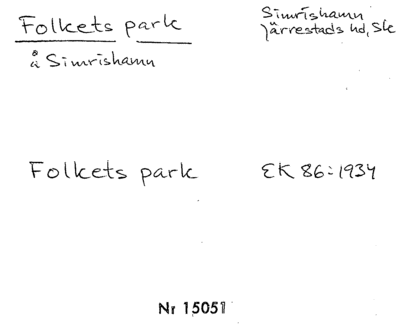 Folkets park
å Simrishamn
Simrishamn
Järrestads hd, Sk
Folkets park
EK 86:1934
Nr 15051